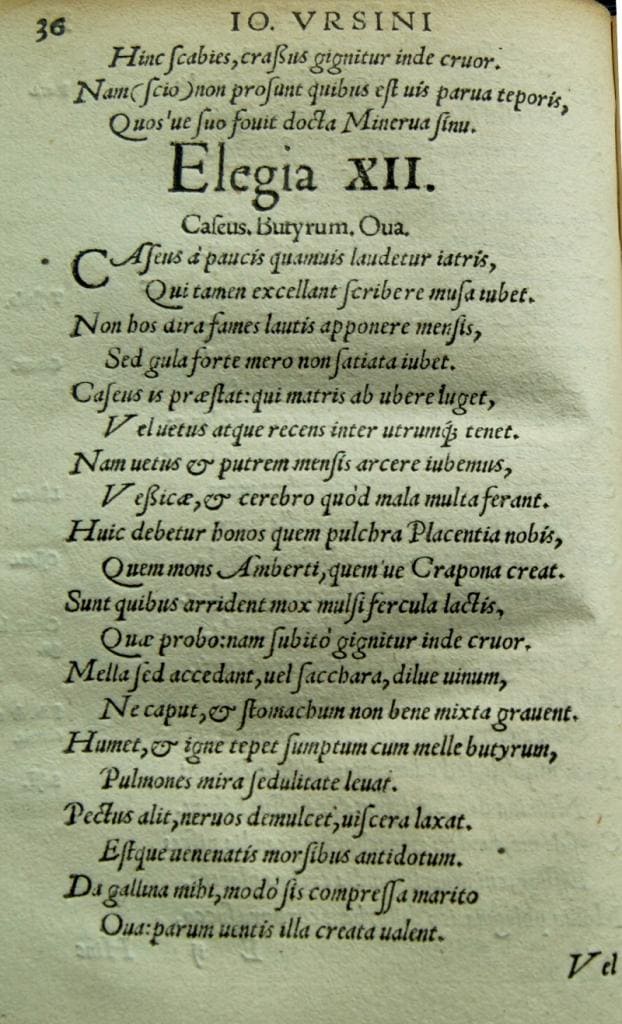 36 IO. VRSINI
Hinc scabies, craßus gignitur inde cruor.
Nam (scio) non prosunt quibus est uis parua teporis,
Quos'ue suo fouit docta Minerua sinu.
Elegia XII.
Caseus. Butyrum. Oua.
CAseus à paucis quamuis laudetur iatris,
Qui tamen excellant scribere musa iubet.
Non hos dira fames lautis apponere mensis,
Sed gula forte mero non satiata iubet.
Caseus is præstat: qui matris ab ubere suget,
Vel uetus atque recens inter utrumq́; tenet.
Nam uetus & putrem mensis arcere iubemus,
Veßicæ, & cerebro quòd mala multa ferant.
Huic debetur honos quem pulchra Placentia nobis,
Quem mons Amberti, quem'ue Crapona creat.
Sunt quibus arrident mox mulsi fercula lactis,
Quæ probo: nam subitò gignitur inde cruor.
Mella sed accedant, uel sacchara, dilue uinum,
Ne caput, & stomachum non bene mixta grauent.
Humet, & igne tepet sumptum cum melle butyrum,
Pulmones mira sedulitate leuat.
Pectus alit, neruos demulcet, uiscera laxat.
Estque uenenatis morsibus antidotum.
Da gallina mihi, modò sis compressa marito
Oua: parum uentis illa creata ualent.
Vel